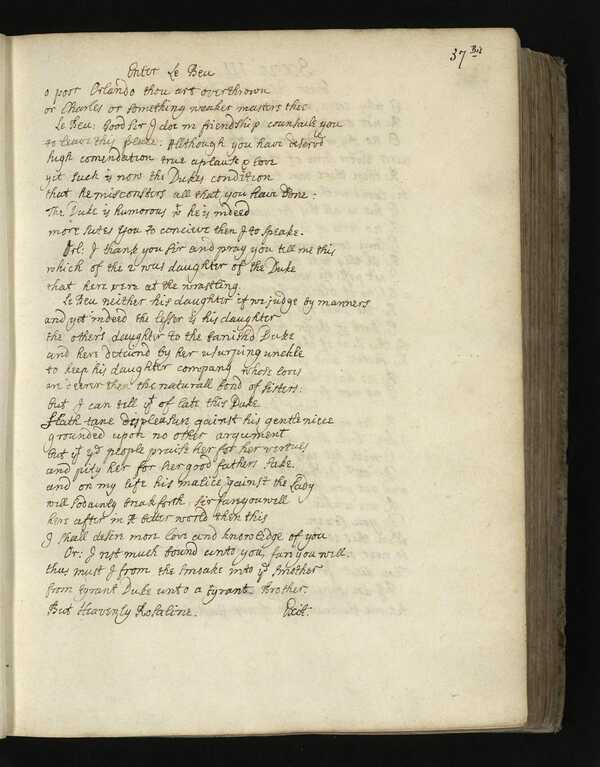 37 Bis
Enter Le Beu
o poor Orlando thou art overthrown
or Charles or something weaker masters thee
Le Beu: Good Sir I doe in friendship counsaile you
to leave this place: Although you have deservd
high comendation true aplause & love
yit such is now the Dukes condition
that he misconsters all that you have done:
The Duke is humorous w he is indeed
more sutes you to concive then I to speake.
Orl: I thank you Sir and pray you tell me this
which of the 2 was daughter of the Duke
that here were at the wrastling.
Le Beu neither his daughter if we judge by manners
and yet indeed the lesser is his daughter
the other's daughter to the banishd Duke
and here detaind by her usurping unckle
to keep his daughter company whose loves
are deerer then the naturall bond of sisters:
but I can tell yt of late this Duke
Hath tane displeasure against his gentle niece
grounded upon no other argument
but yt ye people praise her for her vertues
and pity her for her good fathers sake.
and on my life his malice gainst the Lady
will sodainly break forth, Sir fare you well
here after in a better world then this
I shall desire more love and knowledge of you
Or: I rest much bound unto you, fare you well:
thus must I from the smoake into ye smother
from tyrant Duke unto a tyrant Brother.
But Heavenly Rosaline. Exit: